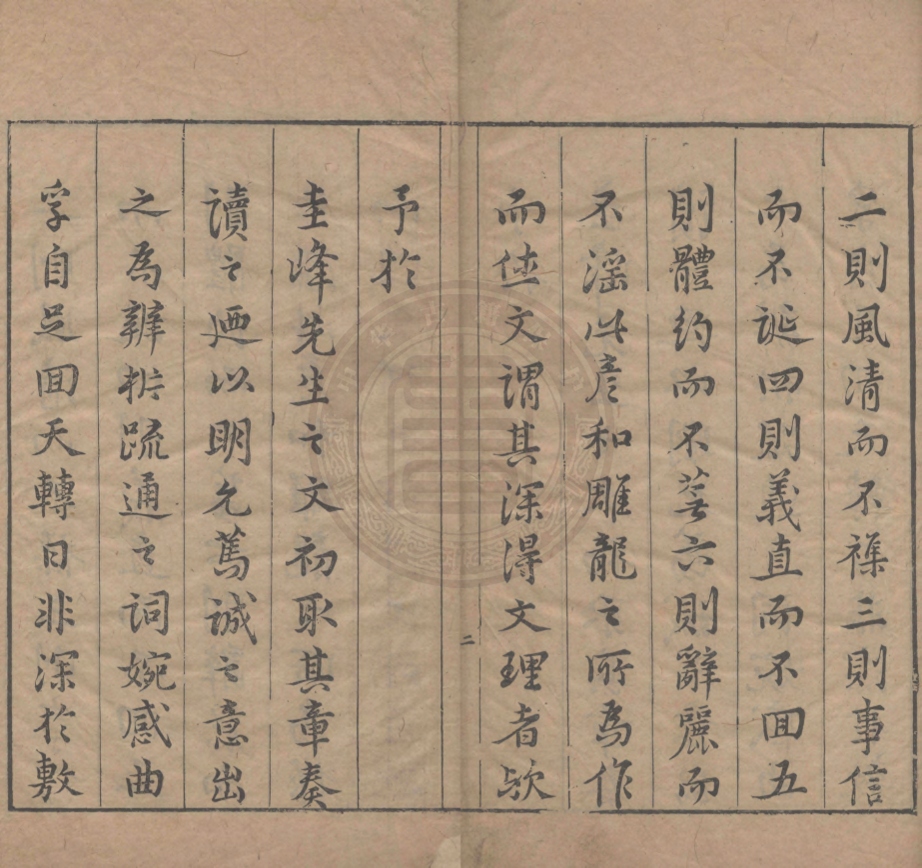 二則風清而不襍三則事信
而不誕四則義直而不回五
則體約而不蕪六則辭麗而
不滛此彥和雕龍之所為作
而任文謂其深得文理者歟
二
予於
圭峰先生之文初取其章奏
讀之廼以明允篤誠之意出
之為辨析疏通之詞婉感曲
孚自足囬天轉日非深於敷